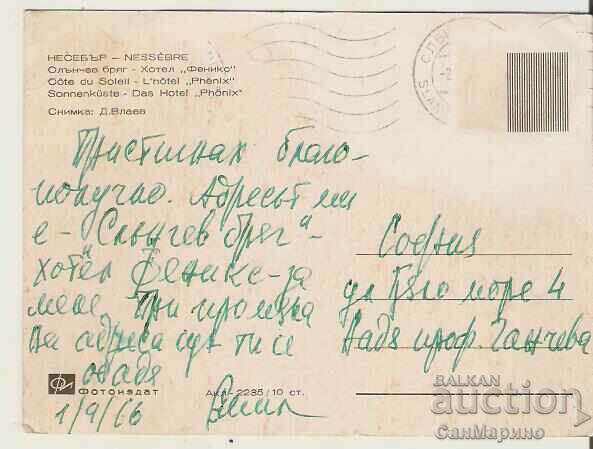 НЕСЕБЪР – NESSÈBRE
Слънчев бряг - Хотел „Феникс"
Côte du Soleil - L'hôtel „Phênix"
Sonnenküste - Das Hotel „Phönix"
Снимка: Д.Влаев
Пристигнах благо-
получно. Адресът ми
е - „Слънчев бряг" -
хотел „Феникс - за
мене. При промяна
на адреса ще ти се
обадя
1/9/66
София
ул Бяло море 4
Надя проф. Ганчева
Фотоиздат
Акл - 2235/10 ст.
BALKAN
auction
СанМарино